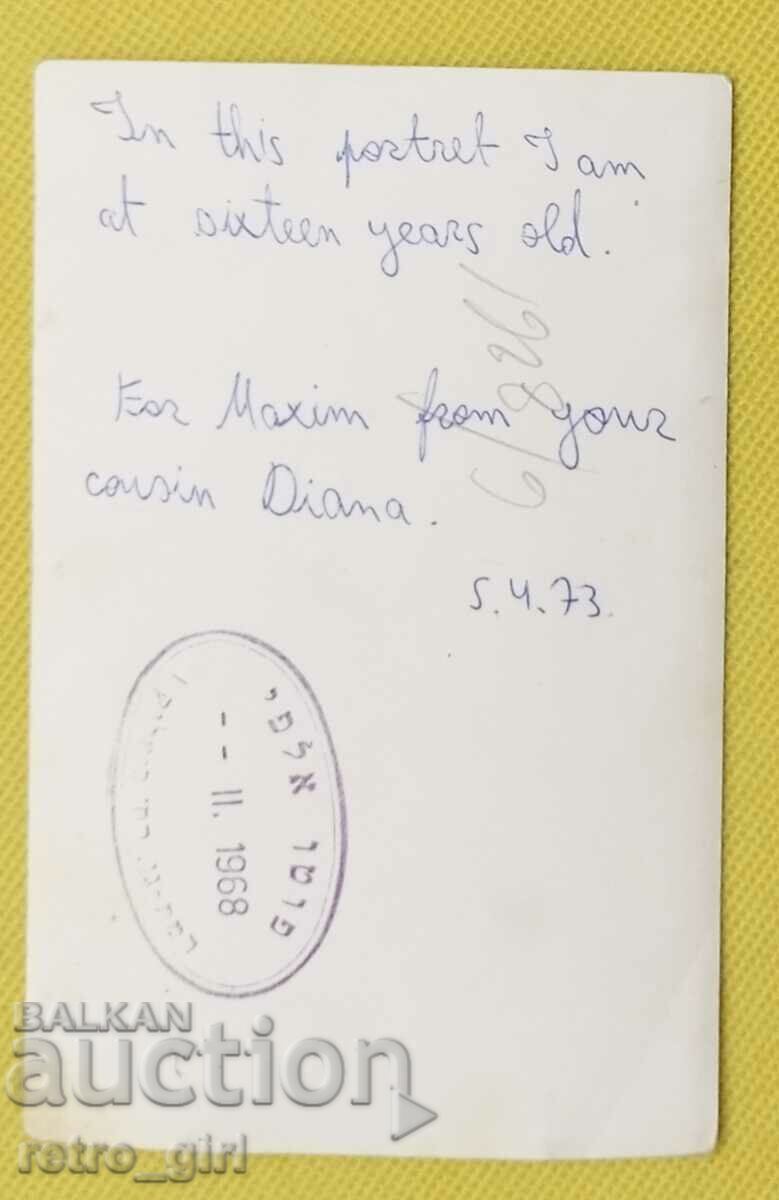 In this portret I am
at sixteen years old.
For Maxim from your
cousin Diana.
5.4.73.
פוטו אלפי
-- II. 1968
BALKAN
auction
retro_girl